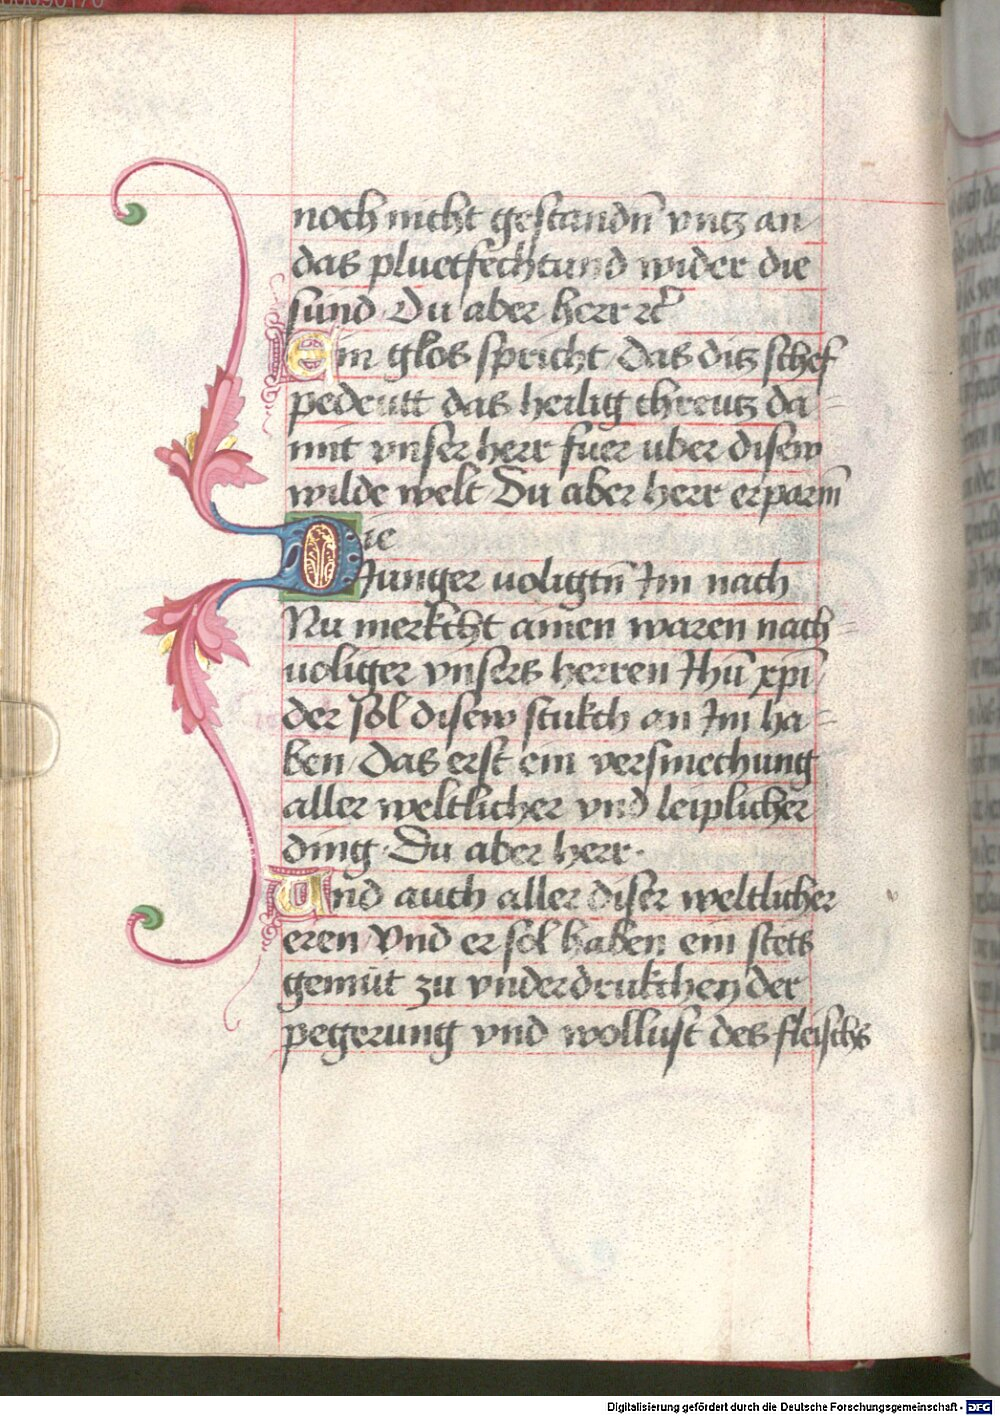 noch nicht gestandn̄ vntz an
das pluetfechtund wider die
sünd Du aber herr ꝛc̄
Ein glos spricht das ditz schef
pedeutt das heilig chreutz da=
mit vnser herr fuer uber disew
wilde welt Du aber herr erparm̄
Die
Junger uoligtn̄ Im nach
Nu merkcht amen waren nach=
uoliger vnsers herren Jhū xpī
der sol disew stukch an Im ha=
ben / Das erst ein versmechung
aller weltlicher vnd leiplicher
ding · Du aber herr ·
Und auch aller diser weltlicher
eren / Vnd er sol haben ein stets
gemüt zu vnderdrukchen der
pegerung vnd wollust des fleischs
Digitalisierung gefördert durch die Deutsche Forschungsgemeinschaft - DFG